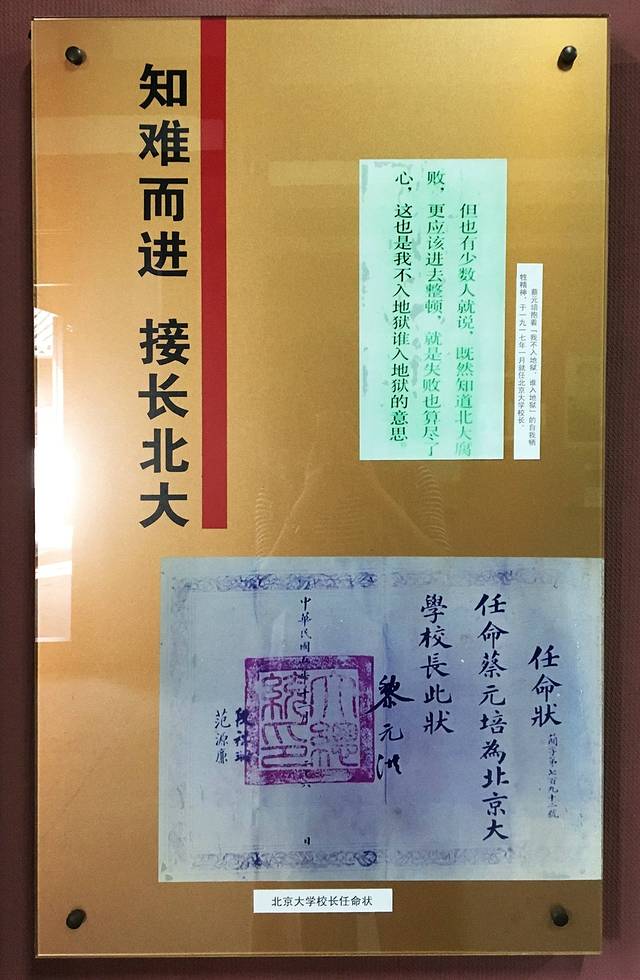 知难而进 接长北大
蔡元培抱着“我不入地狱，谁入地狱”的自我牺
牲精神，于一九一七年一月就任北京大学校长。
但也有少数人就说，既然知道北大腐
败，更应该进去整顿，就是失败也算尽了
心，这也是我不入地狱谁入地狱的意思。
任命狀
簡字第七百九十二號
任命蔡元培為北京大
學校長此狀
黎元洪
大總統印
中華民國五年十 六日
范源廉
北京大学校长任命状